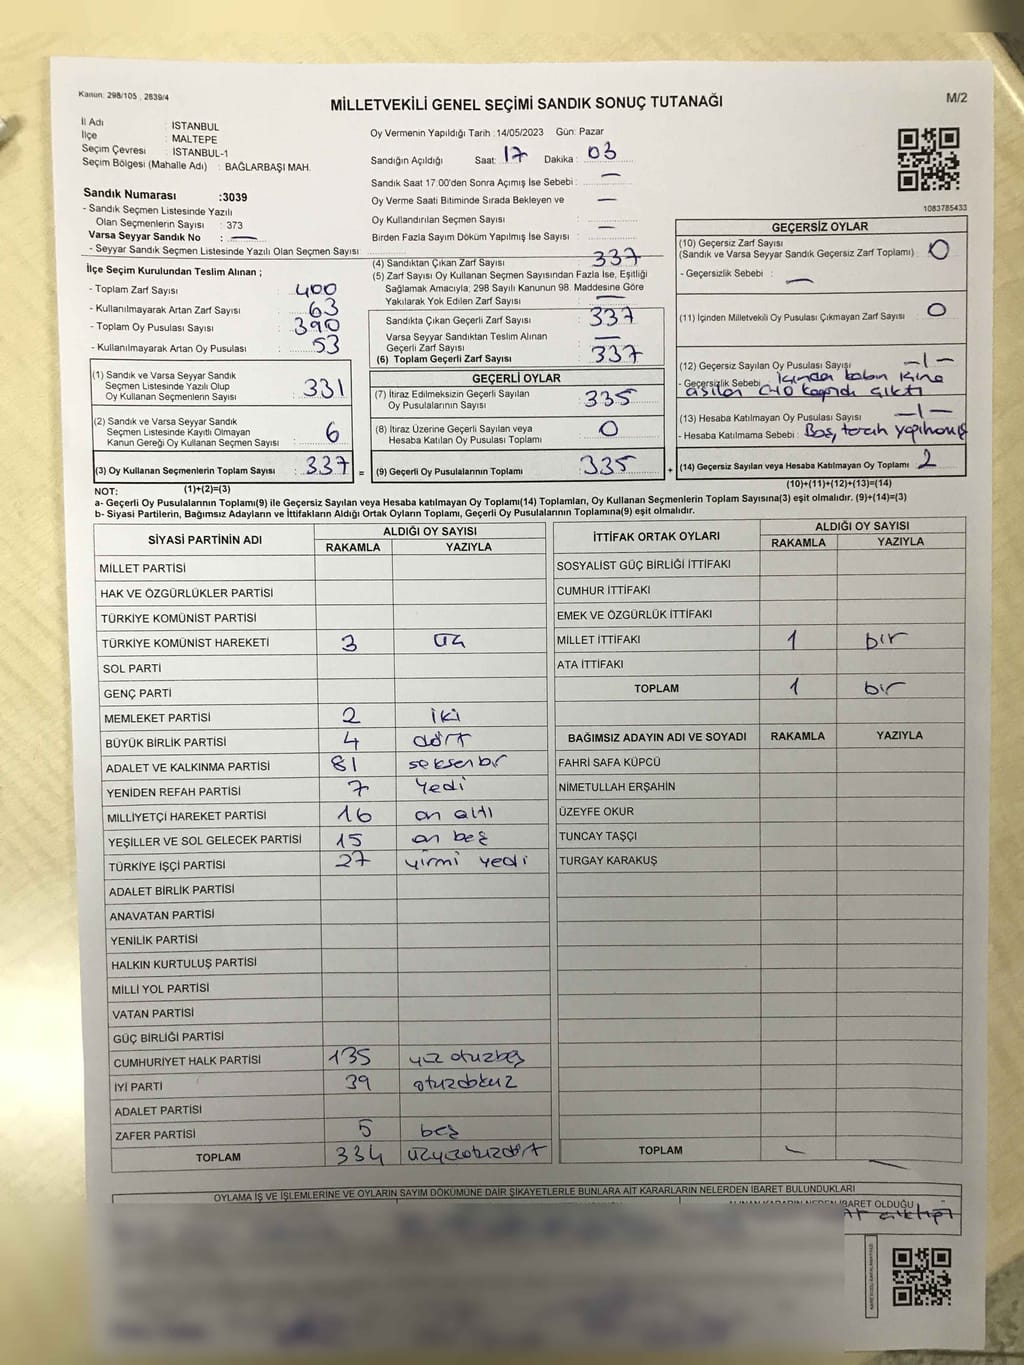 Kanun: 298/105 , 2839/4
MİLLETVEKİLİ GENEL SEÇİMİ SANDIK SONUÇ TUTANAĞI
M/2
İl Adı : İSTANBUL
İlçe : MALTEPE
Seçim Çevresi : İSTANBUL-1
Seçim Bölgesi (Mahalle Adı) : BAĞLARBAŞI MAH.
Sandık Numarası :3039
- Sandık Seçmen Listesinde Yazılı
Olan Seçmenlerin Sayısı : 373
Varsa Seyyar Sandık No : —
- Seyyar Sandık Seçmen Listesinde Yazılı Olan Seçmen Sayısı
Oy Vermenin Yapıldığı Tarih :14/05/2023 Gün: Pazar
Sandığın Açıldığı Saat: 17 Dakika: 03
Sandık Saat 17:00'den Sonra Açımış İse Sebebi : —
Oy Verme Saati Bitiminde Sırada Bekleyen ve —
Oy Kullandırılan Seçmen Sayısı :
Birden Fazla Sayım Döküm Yapılmış İse Sayısı : —
1083785433
İlçe Seçim Kurulundan Teslim Alınan ;
- Toplam Zarf Sayısı : 400
- Kullanılmayarak Artan Zarf Sayısı : 63
- Toplam Oy Pusulası Sayısı : 390
- Kullanılmayarak Artan Oy Pusulası : 53
(1) Sandık ve Varsa Seyyar Sandık
Seçmen Listesinde Yazılı Olup
Oy Kullanan Seçmenlerin Sayısı : 331
(2) Sandık ve Varsa Seyyar Sandık
Seçmen Listesinde Kayıtlı Olmayan
Kanun Gereği Oy Kullanan Seçmen Sayısı : 6
(3) Oy Kullanan Seçmenlerin Toplam Sayısı : 337 =
(1)+(2)=(3)
(4) Sandıktan Çıkan Zarf Sayısı : 337
(5) Zarf Sayısı Oy Kullanan Seçmen Sayısından Fazla İse, Eşitliği
Sağlamak Amacıyla; 298 Sayılı Kanunun 98. Maddesine Göre
Yakılarak Yok Edilen Zarf Sayısı : —
Sandıkta Çıkan Geçerli Zarf Sayısı : 337
Varsa Seyyar Sandıktan Teslim Alınan
Geçerli Zarf Sayısı : —
(6) Toplam Geçerli Zarf Sayısı : 337
GEÇERLİ OYLAR
(7) İtiraz Edilmeksizin Geçerli Sayılan
Oy Pusulalarının Sayısı : 335
(8) İtiraz Üzerine Geçerli Sayılan veya
Hesaba Katılan Oy Pusulası Toplamı : 0
(9) Geçerli Oy Pusulalarının Toplamı : 335 +
GEÇERSİZ OYLAR
(10) Geçersiz Zarf Sayısı
(Sandık ve Varsa Seyyar Sandık Geçersiz Zarf Toplamı) : 0
- Geçersizlik Sebebi : —
(11) İçinden Milletvekili Oy Pusulası Çıkmayan Zarf Sayısı : 0
(12) Geçersiz Sayılan Oy Pusulası Sayısı : —1—
- Geçersizlik Sebebi : İçinden kabin içine
asılan kağıdı çıktı
(13) Hesaba Katılmayan Oy Pusulası Sayısı : —1—
- Hesaba Katılmama Sebebi : Boş, tercih yapılmamış
(14) Geçersiz Sayılan veya Hesaba Katılmayan Oy Toplamı : 2
(10)+(11)+(12)+(13)=(14)
NOT:
a- Geçerli Oy Pusulalarının Toplamı(9) ile Geçersiz Sayılan veya Hesaba katılmayan Oy Toplamı(14) Toplamları, Oy Kullanan Seçmenlerin Toplam Sayısına(3) eşit olmalıdır. (9)+(14)=(3)
b- Siyasi Partilerin, Bağımsız Adayların ve İttifakların Aldığı Ortak Oyların Toplamı, Geçerli Oy Pusulalarının Toplamına(9) eşit olmalıdır.
SİYASİ PARTİNİN ADI ALDIĞI OY SAYISI
RAKAMLA YAZIYLA
MİLLET PARTİSİ
HAK VE ÖZGÜRLÜKLER PARTİSİ
TÜRKİYE KOMÜNİST PARTİSİ
TÜRKİYE KOMÜNİST HAREKETİ 3 üç
SOL PARTİ
GENÇ PARTİ
MEMLEKET PARTİSİ 2 iki
BÜYÜK BİRLİK PARTİSİ 4 dört
ADALET VE KALKINMA PARTİSİ 81 seksenbir
YENİDEN REFAH PARTİSİ 7 Yedi
MİLLİYETÇİ HAREKET PARTİSİ 16 on altı
YEŞİLLER VE SOL GELECEK PARTİSİ 15 on beş
TÜRKİYE İŞÇİ PARTİSİ 27 yirmi yedi
ADALET BİRLİK PARTİSİ
ANAVATAN PARTİSİ
YENİLİK PARTİSİ
HALKIN KURTULUŞ PARTİSİ
MİLLİ YOL PARTİSİ
VATAN PARTİSİ
GÜÇ BİRLİĞİ PARTİSİ
CUMHURİYET HALK PARTİSİ 135 yüz otuzbeş
İYİ PARTİ 39 otuzdokuz
ADALET PARTİSİ
ZAFER PARTİSİ 5 beş
TOPLAM 334 üçyüzotuzdört
İTTİFAK ORTAK OYLARI ALDIĞI OY SAYISI
RAKAMLA YAZIYLA
SOSYALİST GÜÇ BİRLİĞİ İTTİFAKI
CUMHUR İTTİFAKI
EMEK VE ÖZGÜRLÜK İTTİFAKI
MİLLET İTTİFAKI 1 bir
ATA İTTİFAKI
TOPLAM 1 bir
BAĞIMSIZ ADAYIN ADI VE SOYADI RAKAMLA YAZIYLA
FAHRİ SAFA KÜPCÜ
NİMETULLAH ERŞAHİN
ÜZEYFE OKUR
TUNCAY TAŞÇI
TURGAY KARAKUŞ
TOPLAM —
OYLAMA İŞ VE İŞLEMLERİNE VE OYLARIN SAYIM DÖKÜMÜNE DAİR ŞİKAYETLERLE BUNLARA AİT KARARLARIN NELERDEN İBARET BULUNDUKLARI
İBARET OLDUĞU